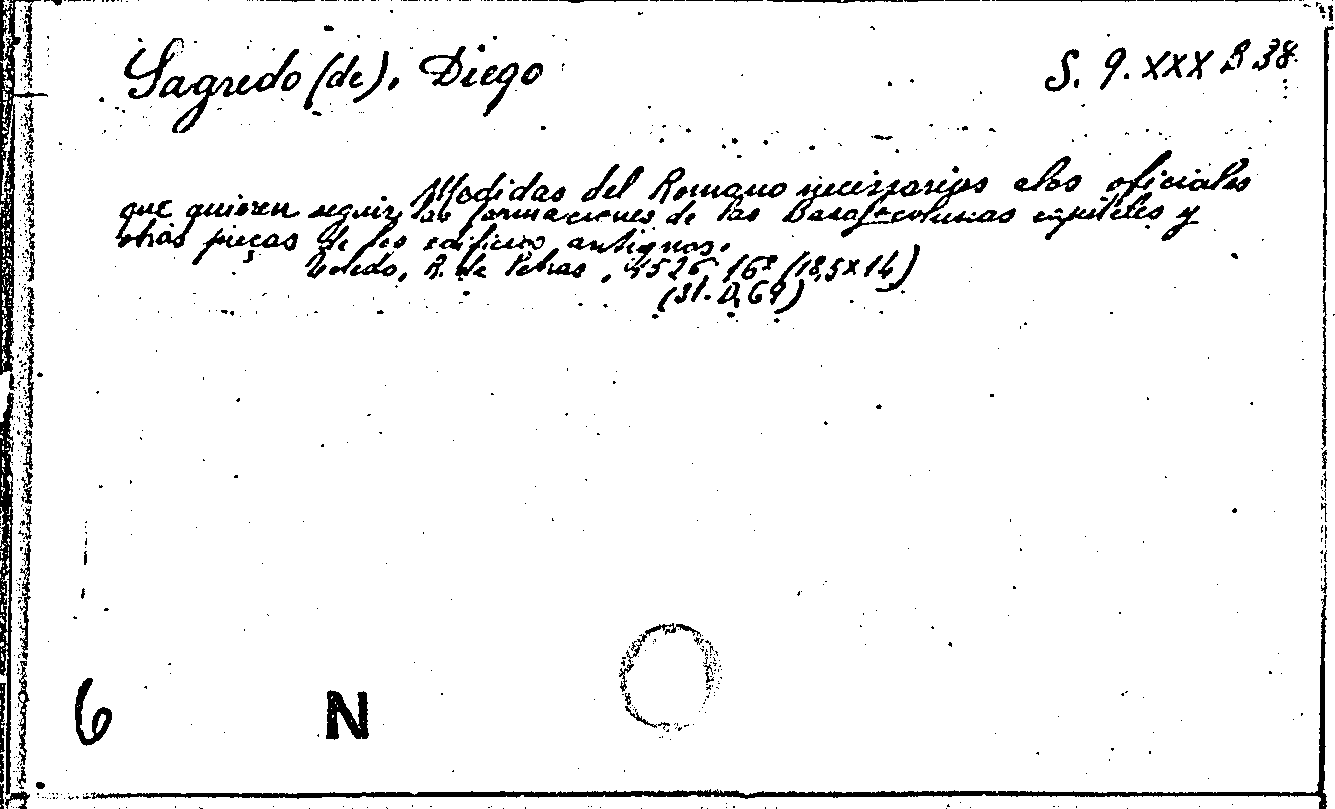 Sagredo (de), Diego
S. 9. XXX B 38.
Medidas del Romano necessarias alos oficiales
que quieren seguir las formaciones de las Basas colunas capiteles y
otras pieças de los edificios antiguos.
Toledo, R. de Petras, 1526, 16º (18,5x14)
(St. D, 69)
6 N